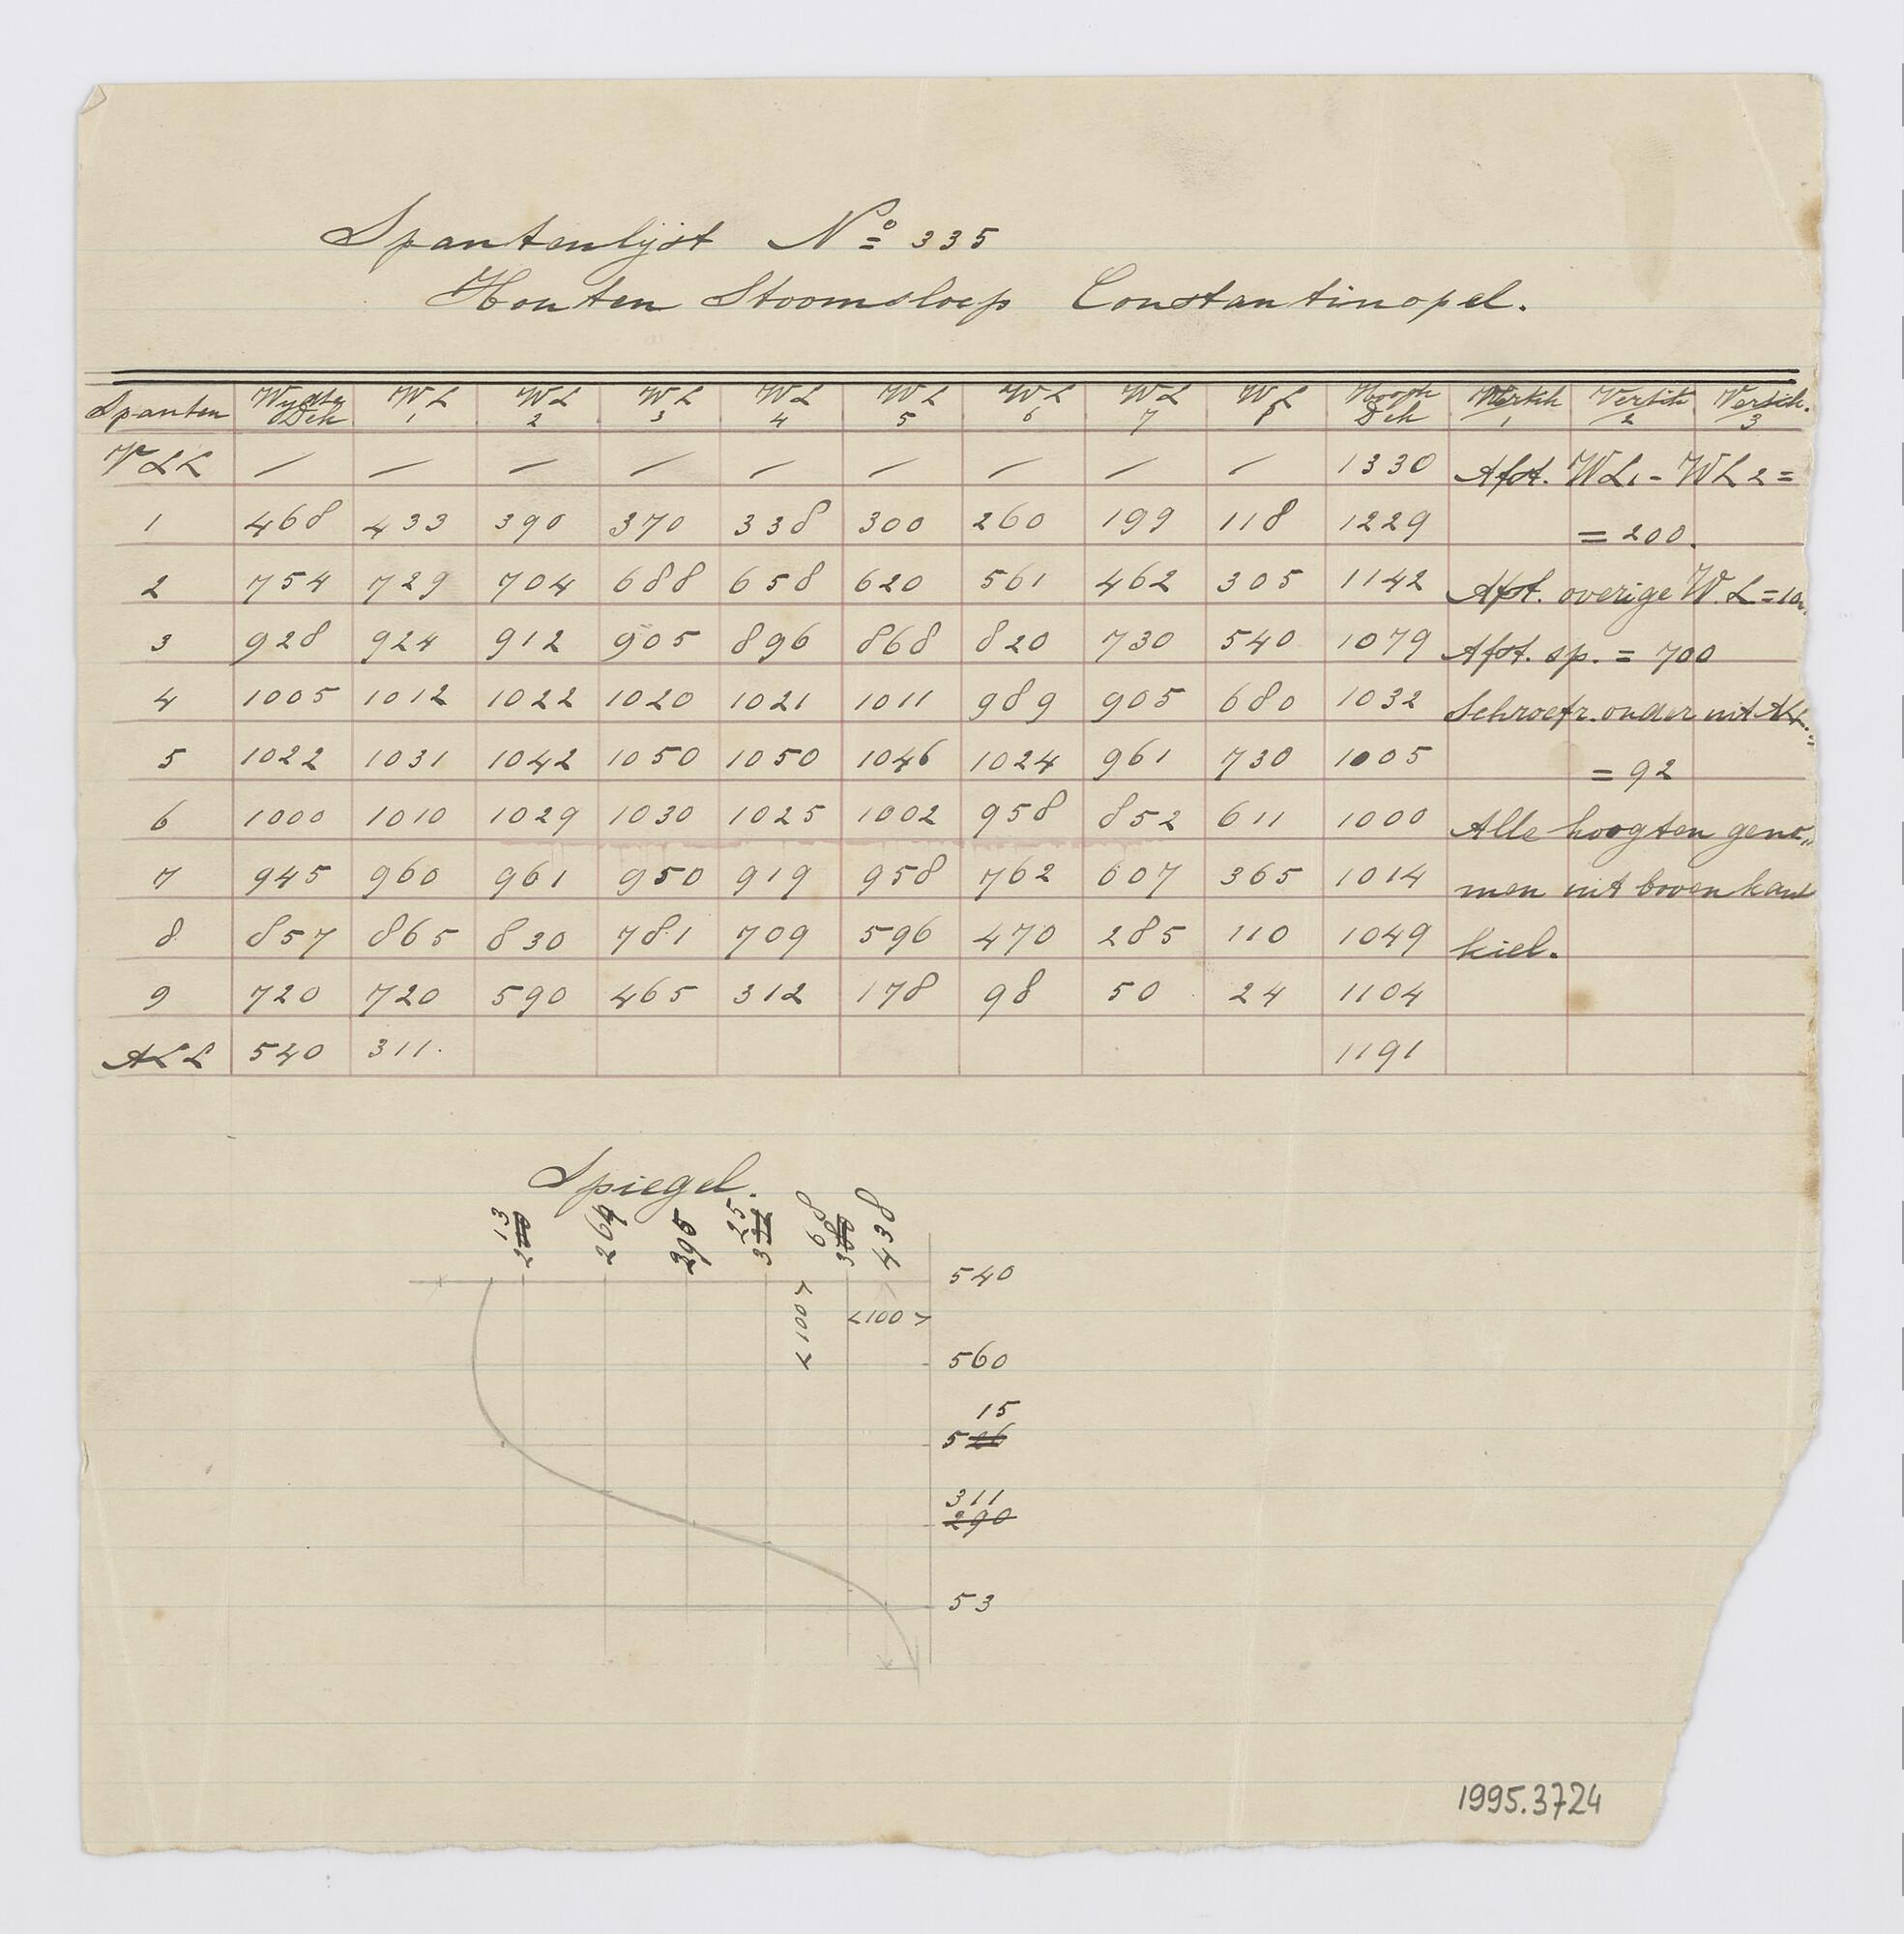 Spantenlijst Nº 335
Houten Stoomsloep Constantinopel.
Spanten Wydte Dek WL 1 WL 2 WL 3 WL 4 WL 5 WL 6 WL 7 WL 8 Hoogte Dek Vertik 1 Vertik 2 Vertik. 3
VLL — — — — — — — — — 1330 Afst. WL1 - WL 2 =
1 468 433 390 370 338 300 260 199 118 1229 = 200.
2 754 729 704 688 658 620 561 462 305 1142 Afst. overige W.L =
3 928 924 912 905 896 868 820 730 540 1079 Afst. sp. = 700
4 1005 1012 1022 1020 1021 1011 989 905 680 1032 Schroefr. onder uit
5 1022 1031 1042 1050 1050 1046 1024 961 730 1005 = 92
6 1000 1010 1029 1030 1025 1002 958 852 611 1000 Alle hoogten geno„
7 945 960 961 950 919 958 762 607 365 1014 men uit bovenkant
8 857 865 830 781 709 596 470 285 110 1049 kiel.
9 720 720 590 465 312 178 98 50 24 1104
ALL 540 311. 1191
Spiegel.
13 25 68
2 264 295 3 3 438
540
<100> <100>
560
15
526
311
290
53
1995.3724